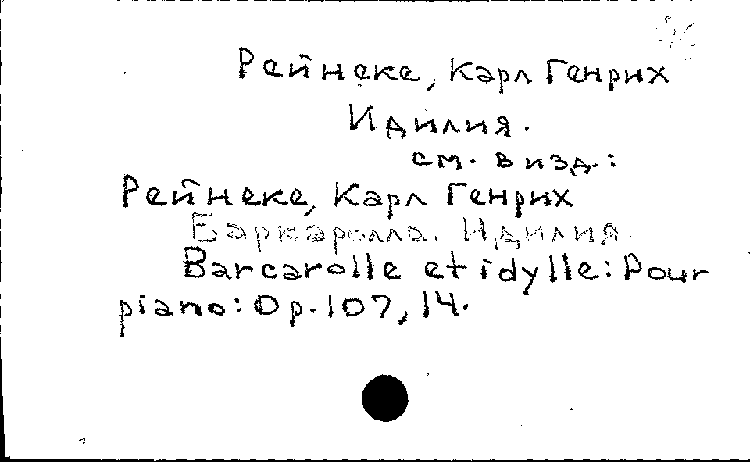 Рейнеке, Карл Генрих
Идилия.
см. в изд.:
Рейнеке, Карл Генрих
Баркаролла. Идилия.
Barcarolle et idylle: Pour
piano: Op. 107, 14.